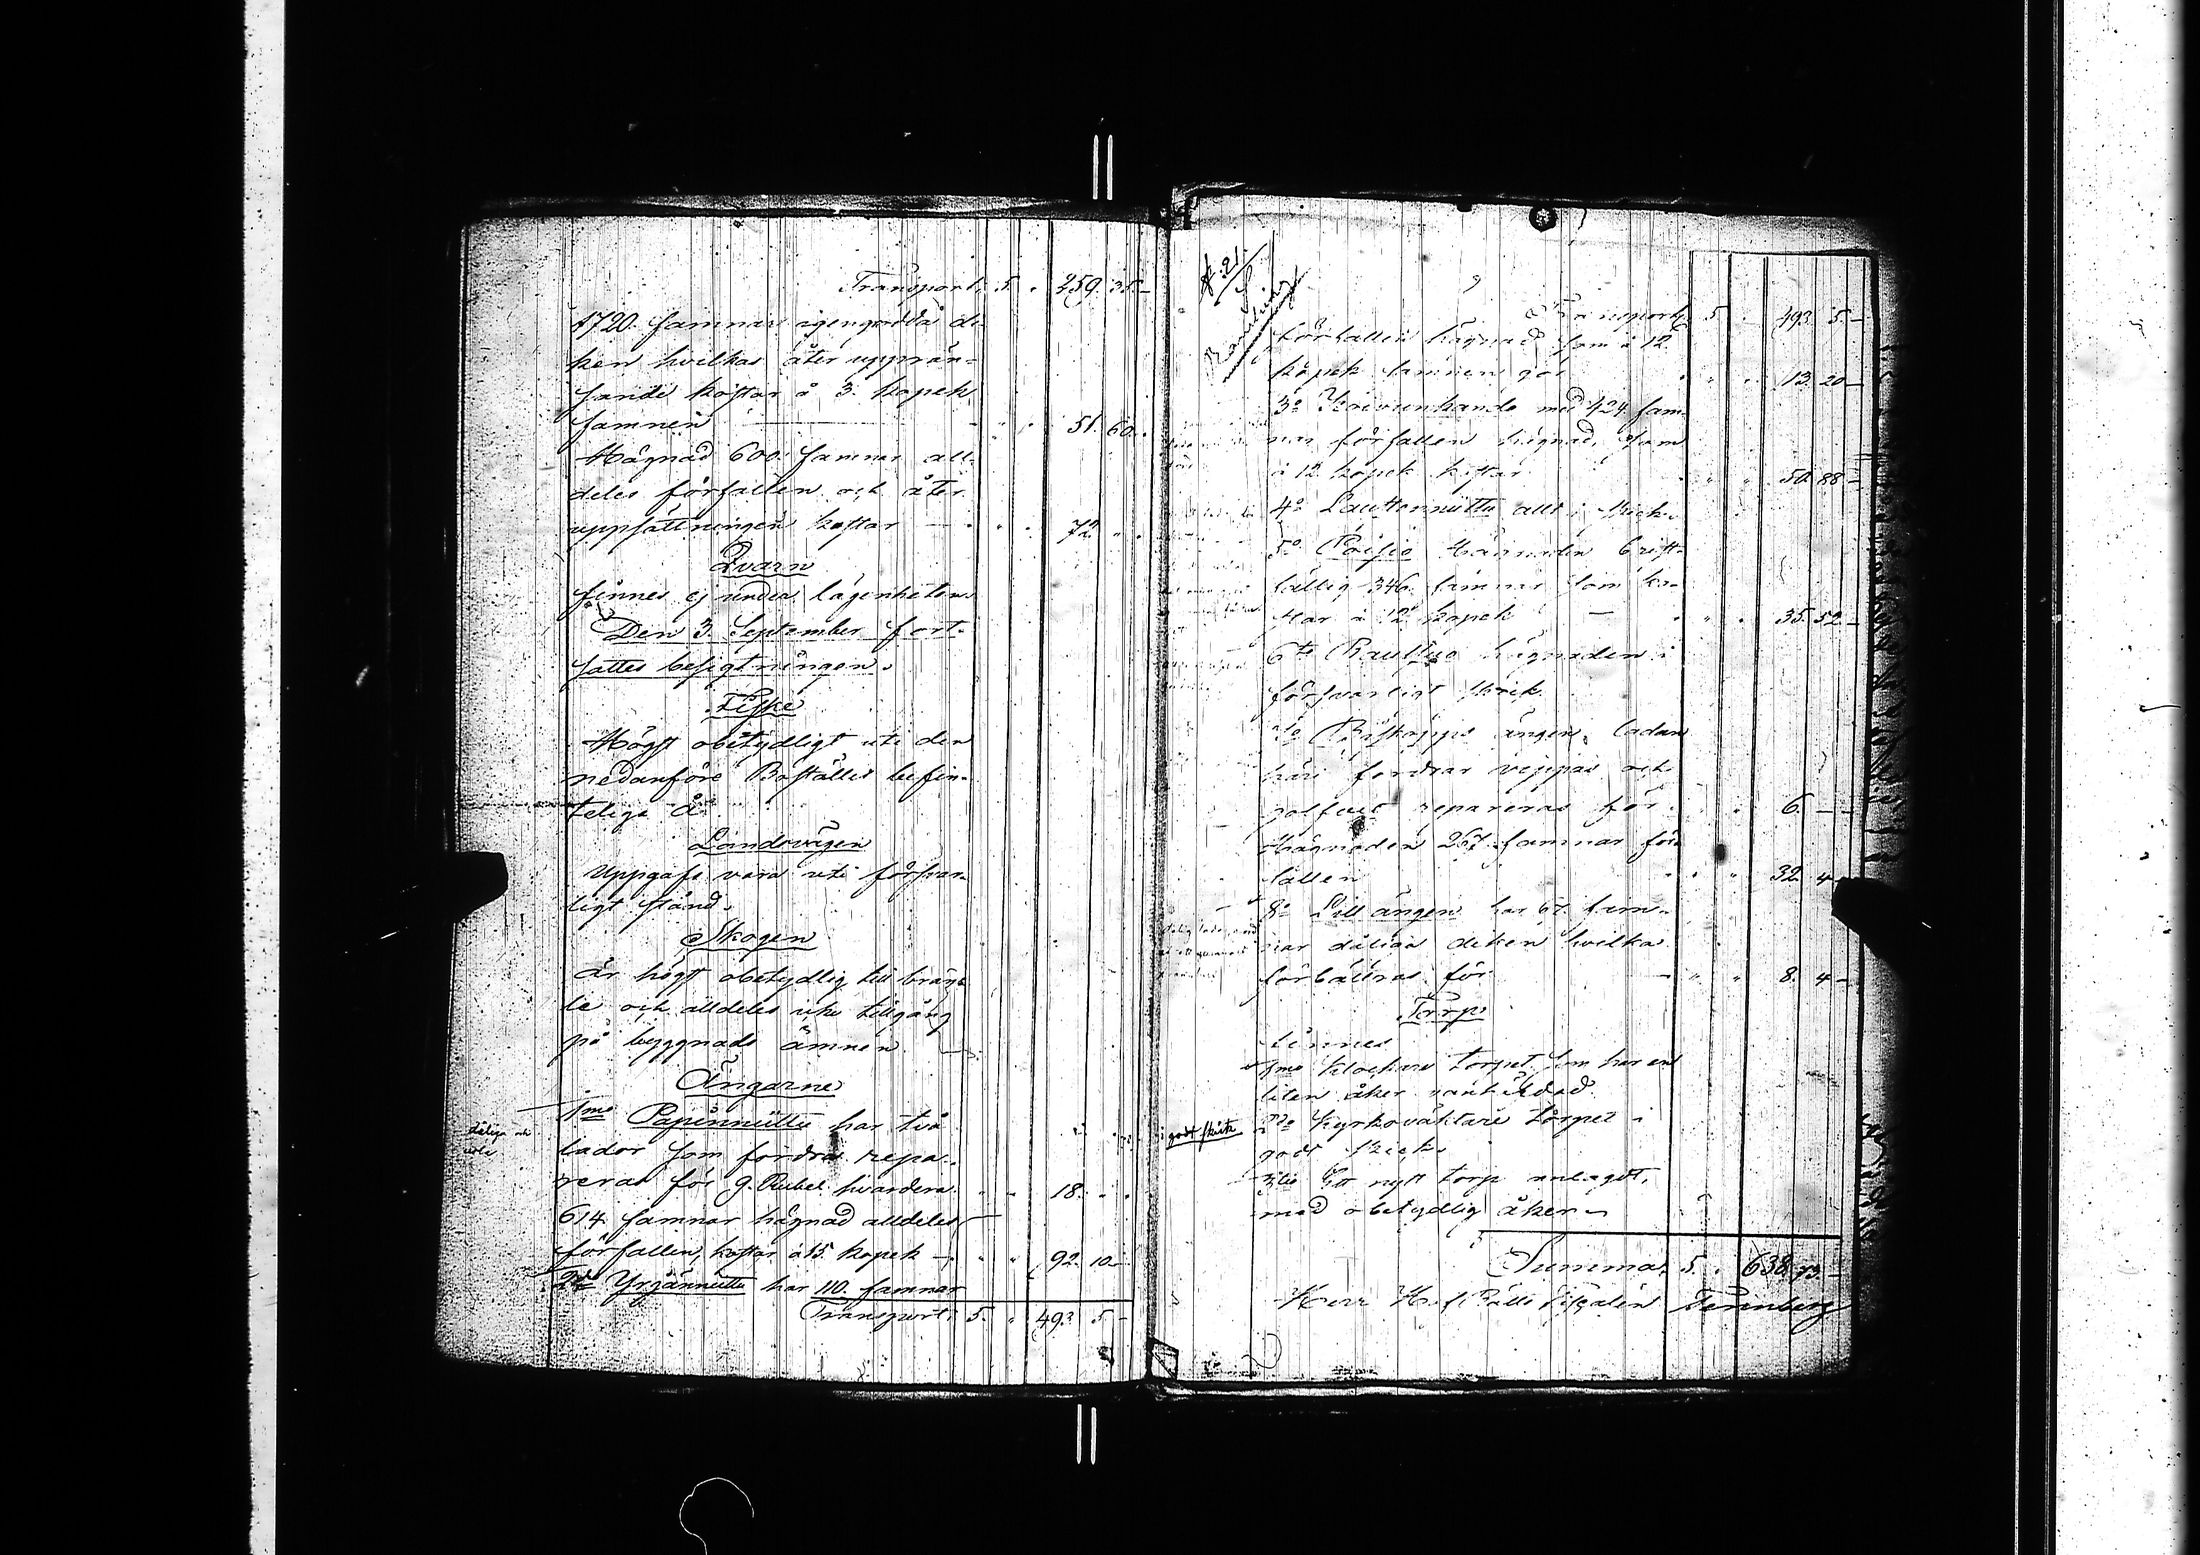 Transport. 5. 259. 35.-
1720. famnar igengrodda di-
ken hvilkas åter upprän-
sande kostar à 3. kopek
famnen - 51. 60.
Hägnad 600. famnar all-
deles förfallen och åter
uppsättningen kostar - 72. " .
Qvarn
finnes ej under lägenheten.
Den 3. September fort-
sattes besigtningen.
Fiske
Högst obetydligt uti den
nedanföre Bostället befin-
teliga Å.
Landsvägen
Uppgafs vara uti försvar-
ligt stånd.
Skogen
är högst obetydlig till brän-
le och alldeles icke tillgång
på byggnads ämnen. -
Ängarne
1mo Papinnüttu har två
dåliga och
lador som fordra repa-
reras för 9. Rubel hvardera. 18. " .
614 famnar hägnad alldeles
förfallen, kostar à 15. kopek - 92. 10.-
2do Yrjännüttu har 110. famnar
Transport. 5. " 493. 5.-
Transport 5. 493. 5.-
förfallen hägnad som à 12.
kopek famnen gör 13. 20.-
3o med 424. fam-
nar förfallen hägnad, som
à 12. kopek kostar 50. 88.-
4o Lauttonnüttu allt i skick.
5o hägnaden brist-
fällig 346. famnar som ko-
star à 12 kopek - 35. 52.-
6to hägnaden i
försvarligt skick.
7o ängen, ladan
häri fordrar och
golfvet repareras för 6. - -
Hägnaden 267. famnar för-
fallen 32. 4.-
8o Lill ängen har 67. fam-
nar dåliga diken hvilka
förbättras för - 8. 4.-
Torp
finnes
1mo Klockare torpet som har en
liten åker vanhäfdad.
2do Kyrkoväktare torpet i
i godt skick
godt skick.
3tio Ett nytt torp anlagdt,
med obetydlig åker.
Summa. 5. 638. 73.-
Herr Hof Rätts Fiscalen